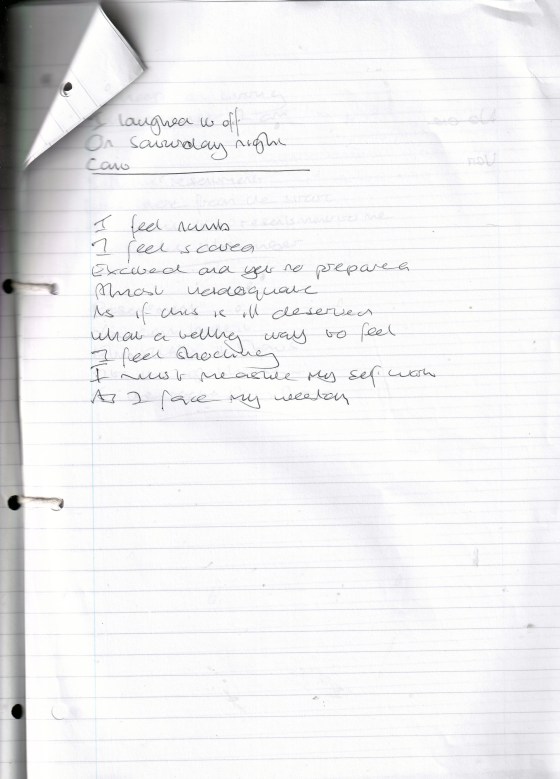 I laughed it off
On Saturday night
I feel numb
I feel scared
Excited and yet no prepared
Almost inadequate
As if this is ill deserved
what a way to feel
I feel shocking
I must measure my self worth
As I face my